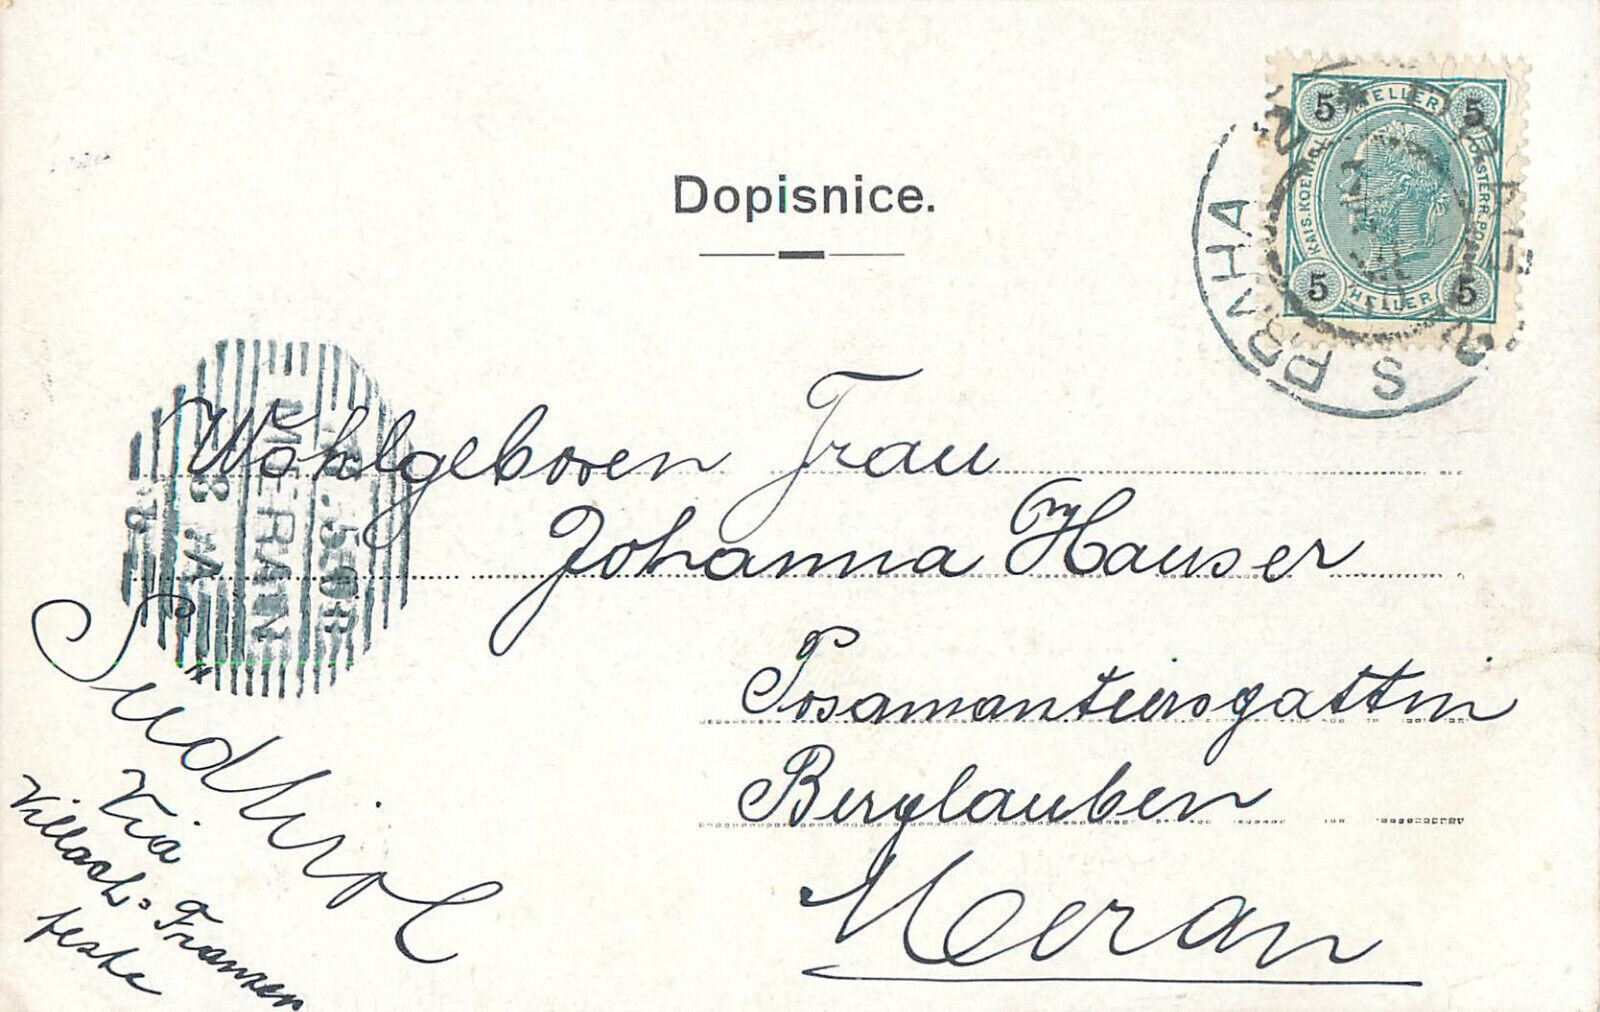 Dopisnice.
5 HELLER 5
KAIS. KOENIGL. OESTERR. POST
5 HELLER 5
PRAHA
MERAN
Wohlgeboren Frau
Johanna Hauser
Posamentiersgattin
Berglauben
Meran
Südtirol
Via
Villach = Franzens
feste